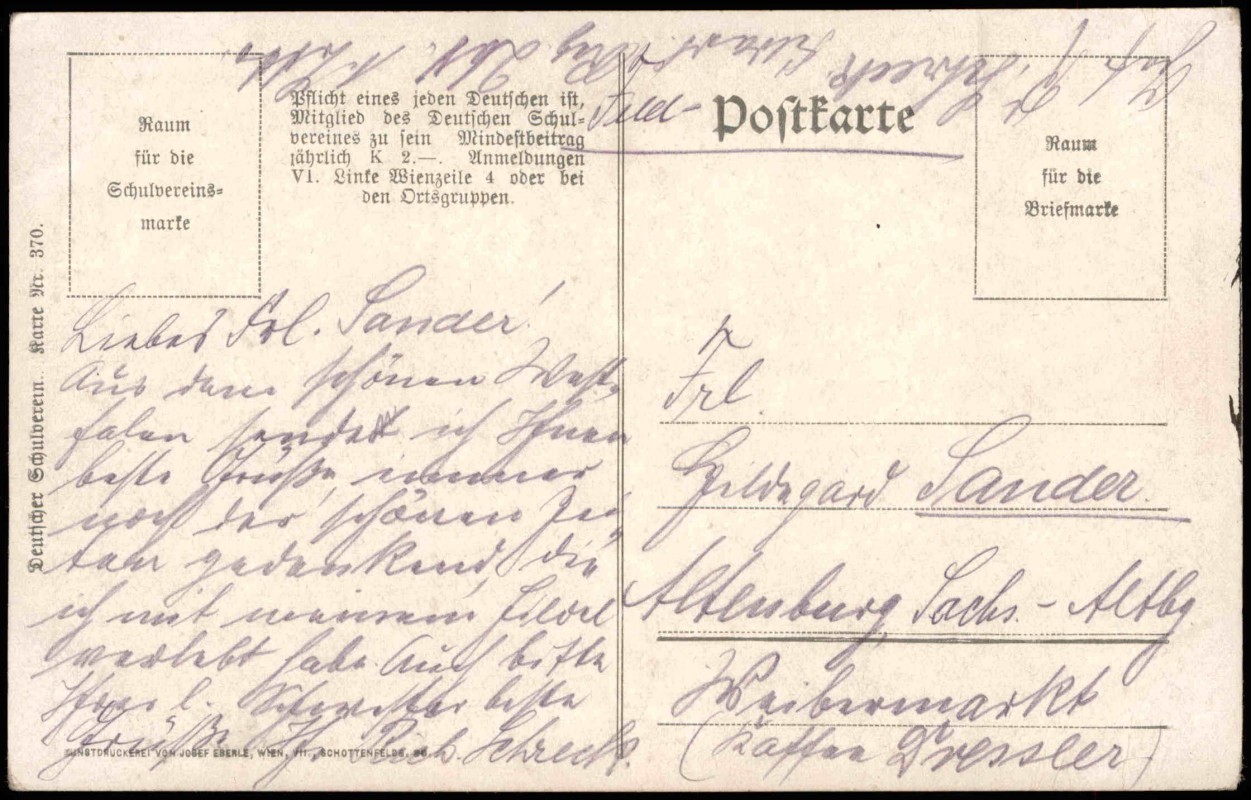 Raum
für die
Schulvereins-
marke
Pflicht eines jeden Deutschen ist,
Mitglied des Deutschen Schul-
vereines zu sein Mindestbeitrag
jährlich K 2.—. Anmeldungen
VI. Linke Wienzeile 4 oder bei
den Ortsgruppen.
Feld-Postkarte
Raum
für die
Briefmarke
Deutscher Schulverein. Karte Nr. 370.
Liebes Frl. Sander!
Aus dem schönen West-
falen sende ich Ihnen
beste Grüße, immer
noch der schönen Zei-
ten gedenkend, die
ich mit meinem
verlebt habe. Auch bitte
Ihrer l. Schwester beste
Grüße Ihr Rich. Schreck.
KUNSTDRUCKEREI VON JOSEF EBERLE, WIEN, VII., SCHOTTENFELDG.
Frl.
Hildegard Sander.
Altenburg Sachs.-Altbg
Weibermarkt
(Kaffee Dressler)